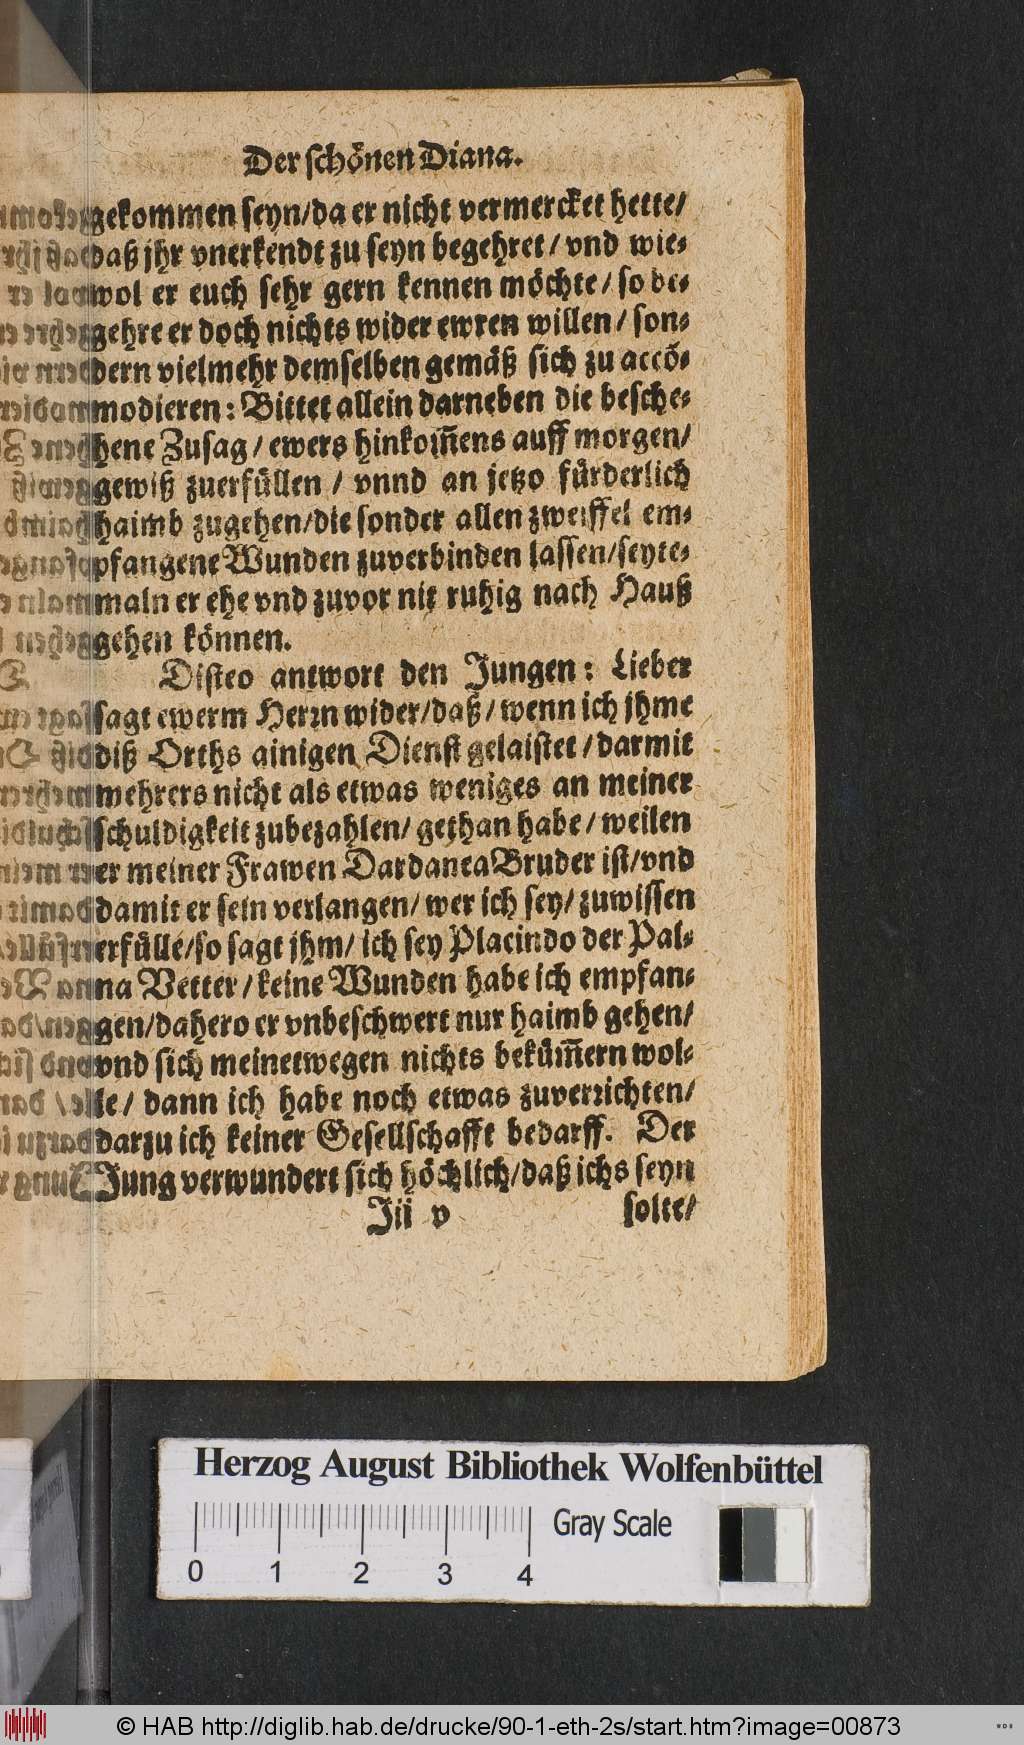 Der schönen Diana.
gekommen seyn/da er nicht vermercket hette/
daß jhr vnerkendt zu seyn begehret/ vnd wie-
wol er euch sehr gern kennen möchte/ so be-
gehre er doch nichts wider ewren willen/ son-
dern vielmehr demselben gemäß sich zu accō-
modieren: Bittet allein darneben die besche-
hene Zusag/ ewers hinkom̃ens auff morgen/
gewiß zuerfüllen/ vnnd an jetzo fürderlich
haimb zugehen/die sonder allen zweiffel em-
pfangene Wunden zuverbinden lassen/seyte-
maln er ehe vnd zuvor nit ruhig nach Hauß
gehen können.
Disteo antwort den Jungen: Lieber
sagt ewerm Herꝛn wider/daß/ wenn ich jhme
diß Orths ainigen Dienst gelaistet/darmit
mehrers nicht als etwas weniges an meiner
schuldigkeit zubezahlen/ gethan habe/ weilen
er meiner Frawen Dardanea Bruder ist/vnd
damit er sein verlangen/ wer ich sey/ zuwissen
erfülle/so sagt jhm/ ich sey Placindo der Pal-
na Vetter/keine Wunden habe ich empfan-
gen/dahero er vnbeschwert nur haimb gehen/
vnd sich meinetwegen nichts bekům̃ern wol-
le/ dann ich habe noch etwas zuverꝛichten/
darzu ich keiner Gesellschafft bedarff. Der
Jung verwundert sich höchlich/daß ichs seyn
Jii v solte/
Herzog August Bibliothek Wolfenbüttel
0 1 2 3 4 Gray Scale
© HAB http://diglib.hab.de/drucke/90-1-eth-2s/start.htm?image=00873